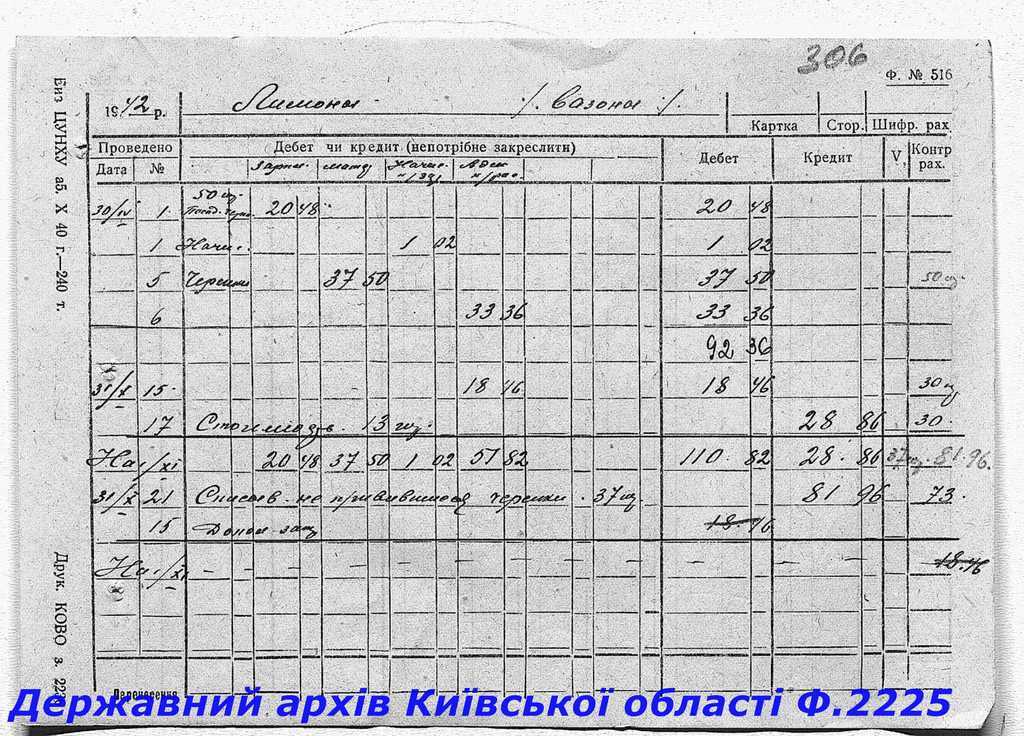 306
Ф. № 516
1942 р. Лимоны /. Вазоны /.
Картка Стор. Шифр. рах.
Проведено Дебет чи кредит (непотрібне закреслити) Дебет Кредит V, Контр рах.
Дата №
50 шт.
30/IV 1 20 48 20 48
1 Начис. 1 02 1 02
5 Черенки 37 50 37 50 50 шт.
6 33 36 33 36
92 36
31/X 15 18 46 18 46 30 шт
17 13 шт. 28 86 30.
На 1/XI 20 48 37 50 1 02 51 82 110 82 28 86 37 шт. 81.96.
31/X 21 Списыв. не привившиеся черенки. 37 шт. 81 96 73.
15 18 46
На 1/XI – – – – – – – – – – – 18.46
Перенесення
Биз ЦУНХУ аб. X 40 г.—240 т.
Друк. КОВО з.
Державний архів Київської області Ф.2225